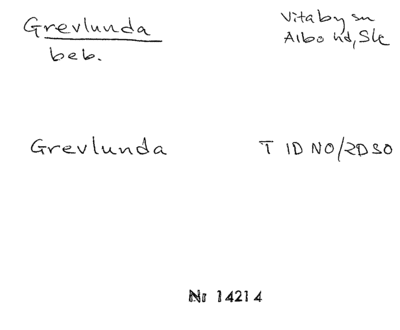 Grevlunda
Vitaby sn
beb.
Albo hd, Sk
Grevlunda
T 1D NO/2D SO
Nr 14214